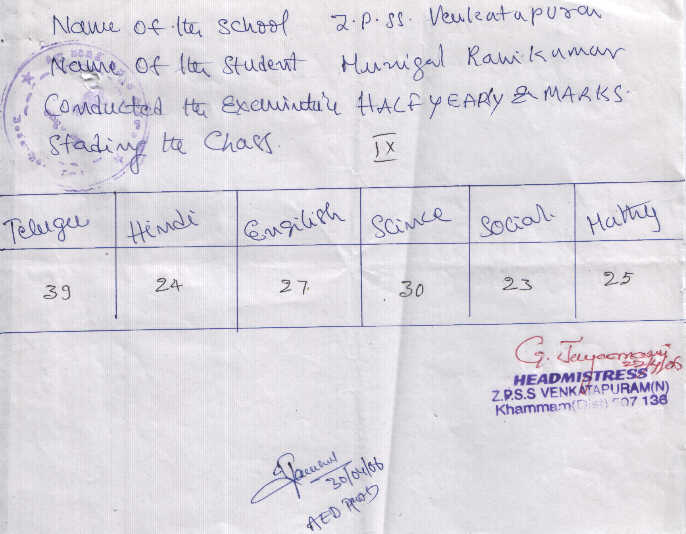 Name of the School Z.P.SS. Venkatapuram
Name of the Student Munigal Ravikumar
Conducted the Examinati'n HALF YEARLY & MARKS.
Stading the Class. IX
Telugu Hindi Engilish Science Social Maths
39 24 27 30 23 25
G. Jayamani
HEADMISTRESS
Z.P.S.S VENKATAPURAM(N)
Khammam(Dist) 507 136
30/04/06
AED